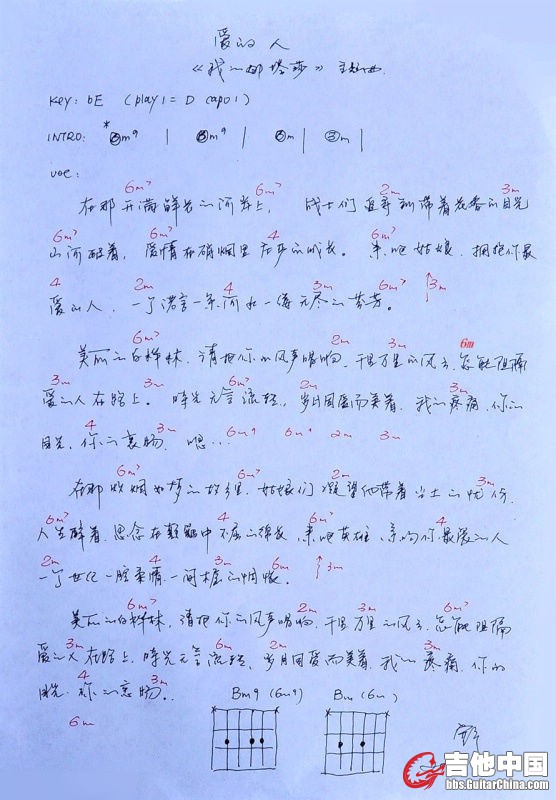 爱的人
《我的娜塔莎》主题曲
key: bE (play 1= D capo 1)
INTRO: * ⑥m⁹ | ⑥m⁹ | ②m | ③m |
voc:
6m⁷ 6m⁷ 2m 3m
在那开满鲜花的河岸上, 战士们 带着花香的目光
6m⁷ 6m⁷ 4 4
山河醉着, 爱情在硝烟里 在梦的 长。 来吧姑娘, 拥抱你最
4 2m 4 3m 6m⁷ ↑3m
爱的人, 一个诺言一条河 如一缕无尽的芬芳。
6m⁷ 2m 3m 6m
美丽的白桦林, 请把你的风声唱响, 千里万里的风云, 怎能阻隔
3m 3m 6m⁷ 2m 3m
爱的人在路上。 时光无言流转, 岁月因爱而美着, 我的疼痛, 你的
4 3m 6m⁹ 6m⁹ 2m 3m
目光, 你的哀伤, 嗯...
6m⁷ 6m⁷ 2m 3m
在那炊烟如梦的故乡里, 姑娘们凝望 带着 土的忧伤,
6m⁷ 4 6m⁷ 4
人生醉着, 思念在 中不屈的绵长, 来吧英雄, 亲吻你最爱的人
2m 4 3m 6m ↑3m
一个世纪一腔柔情一阕 的惆怅。
6m⁷ 2m 3m 6m⁷
美丽的白桦林, 请把你的风声唱响, 千里万里的风云, 怎能阻隔
3m 4 6m 2m 3m
爱的人在路上, 时光无言流转, 岁月因爱而美着, 我的疼痛, 你的
4 3m
目光, 你的哀伤..
6m
Bm9 (6m9) Bm (6m)
吉他中国
bbs.GuitarChina.com